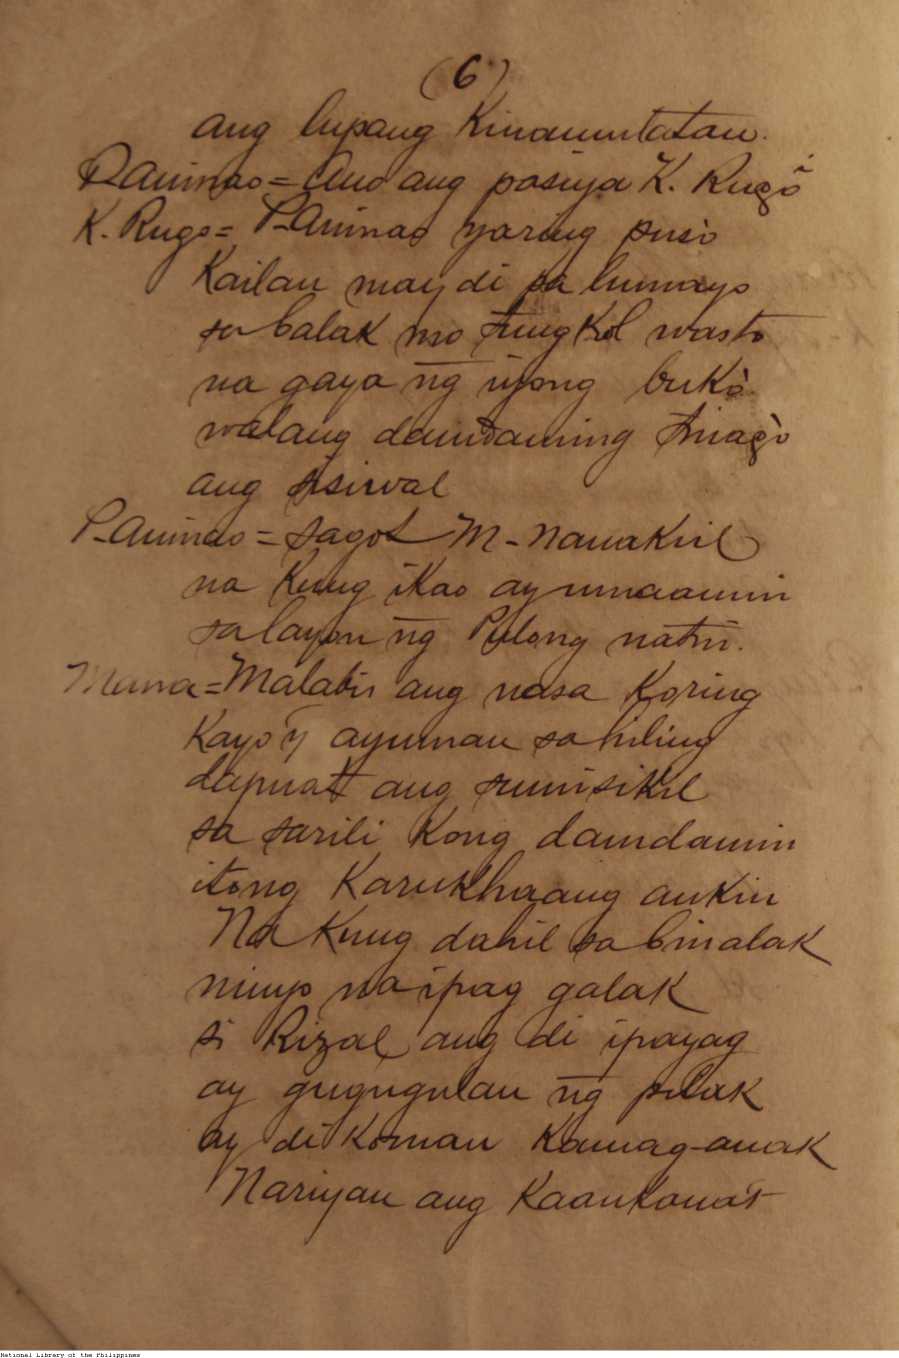 (6)
ang lupang Kinamuntatan.
P-Aninao = Ano ang pasiya K. Rugò
K. Rugo = P-Aninao yaring puso
Kailan may di sa lumayo
sa balak mo tungKol wasto
na gaya ng iyong buKò
walang damdaming tinagò
ang sisiwal
P-Aninao = sagot M-NanaKiil
na Kung iKao ay umaamin
sa layon ng Pulong natin.
Mana = Malabis ang nasa Koring
Kayo'y ayunan sa hiling
dapuat ang sumisiKil
sa sarili Kong damdamin
itong Karukhaang anKin
Na Kung dahil sa binalak
ninyo na ipag galak
si Rizal ang di ipayag
ay gugugulan ng pilak
ay di Koman Kamag-anak
Nariyan ang
National Library of the Philippines